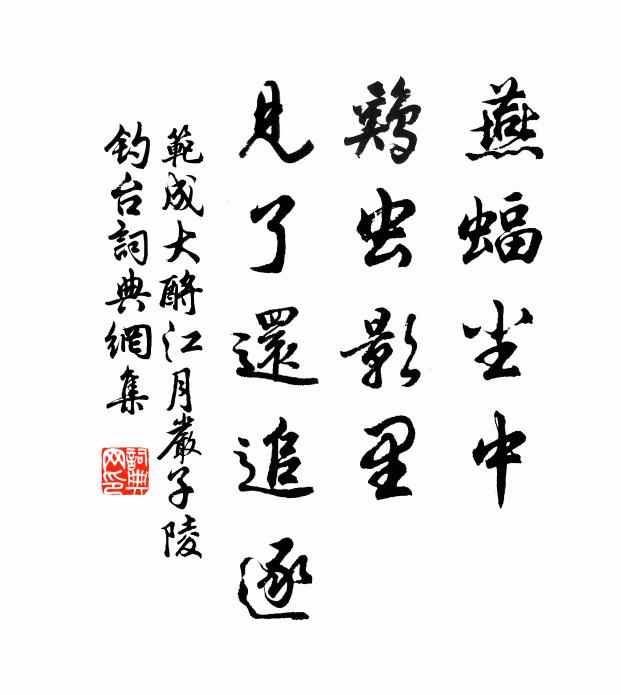 燕蝠尘中
鷄虫影里
見了還追逐
範成大酹江月嚴子陵
釣台詞典網集
詞典
网印